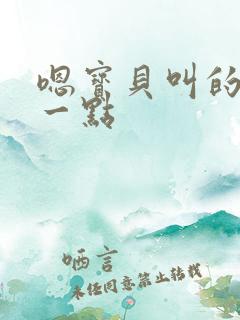 嗯寶貝叫的
一點
哂言
未经同意禁止转载